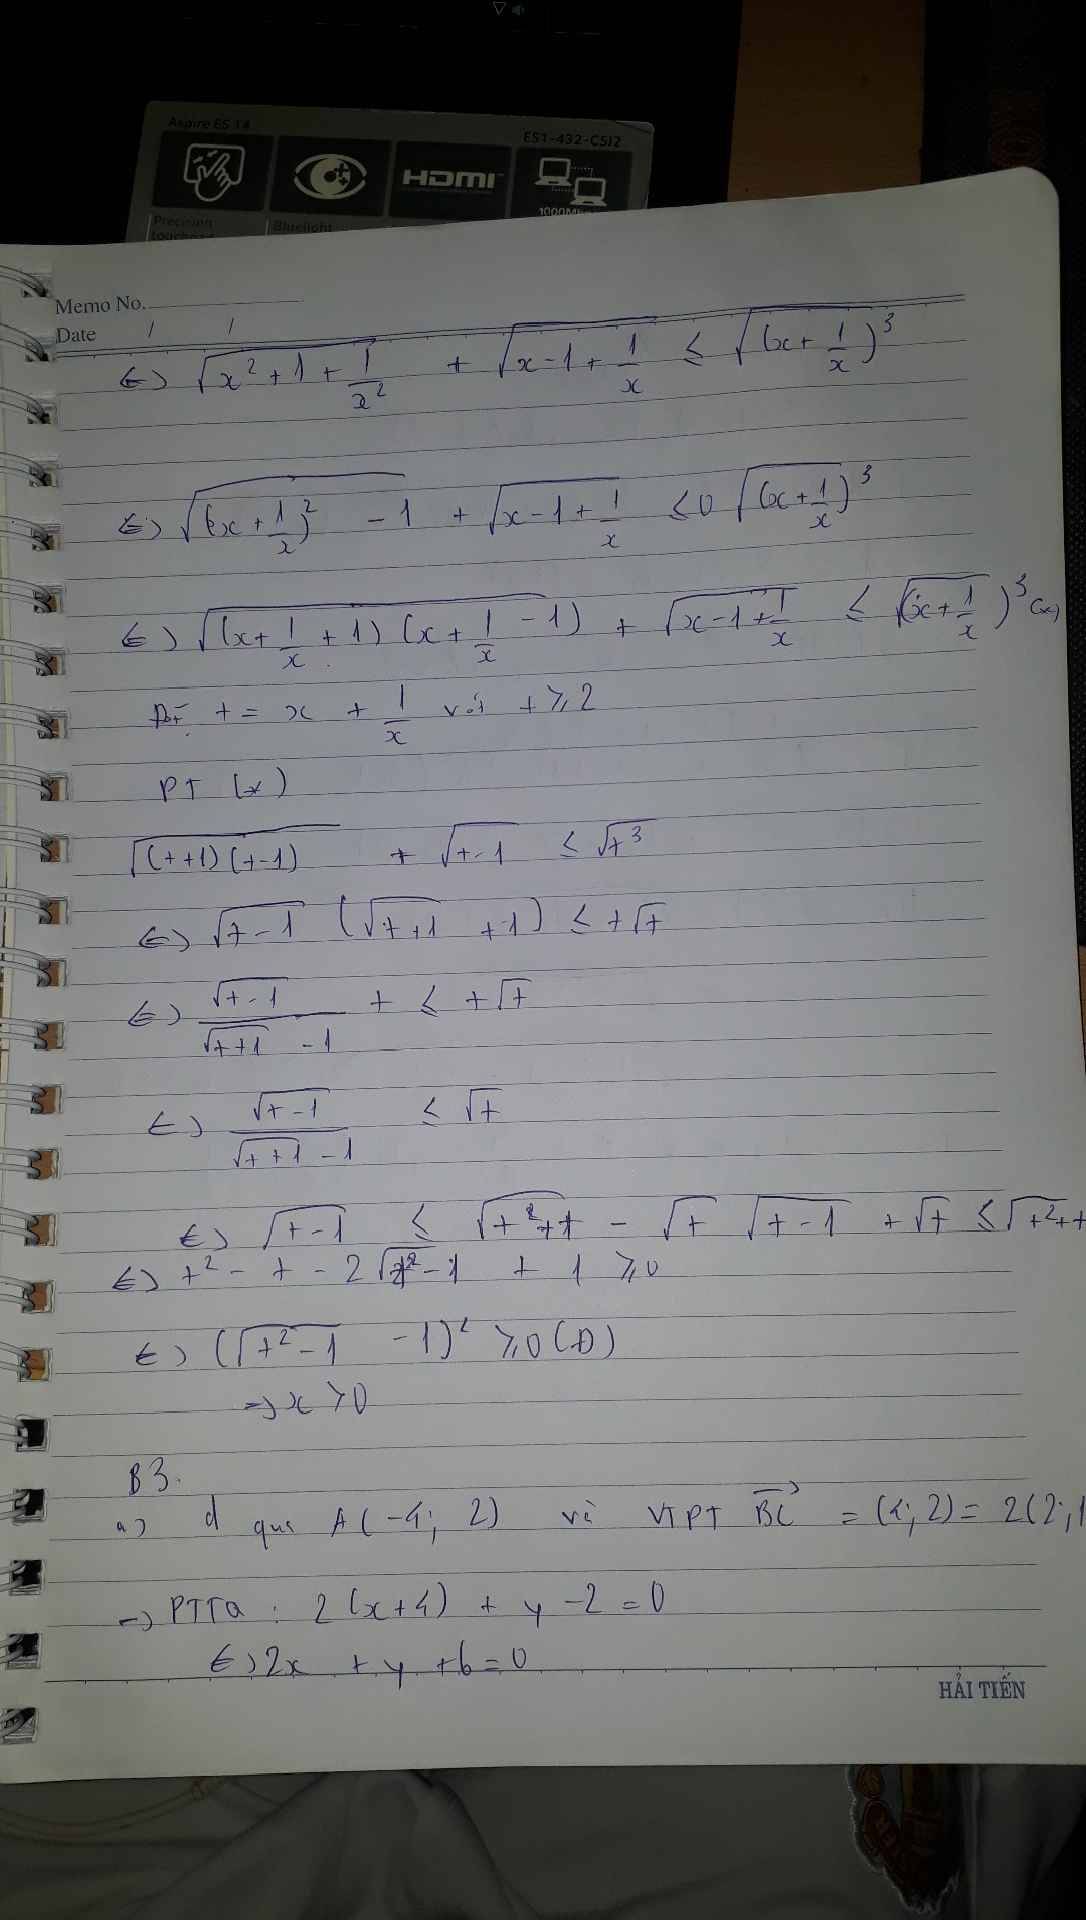 Aspire ES 14
ES1-432-C5J2
HDMI
Precision
touchpad
Bluelight
Memo No.
Date / /
⇔ √(x² + 1 + 1/x²) + √(x - 1 + 1/x) ≤ √(x + 1/x)³
⇔ √((x + 1/x)² - 1) + √(x - 1 + 1/x) ≤ 0 √(x + 1/x)³
⇔ √((x + 1/x + 1)(x + 1/x - 1)) + √(x - 1 + 1/x) ≤ √(x + 1/x)³ (*)
Đặt t = x + 1/x với t ≥ 2
PT (*)
√((t+1)(t-1)) + √(t-1) ≤ √t³
⇔ √(t-1) (√(t+1) + 1) ≤ t√t
⇔ √(t-1) / (√(t+1) - 1) t ≤ t√t
⇔ √(t-1) / (√(t+1) - 1) ≤ √t
⇔ √(t-1) ≤ √(t²+t) - √t √(t-1) + √t ≤ √(t²+t
⇔ t² - t - 2√(t²-1) + 1 ≥ 0
⇔ (√(t²-1) - 1)² ≥ 0 (Đ)
⇒ x > 0
B3.
a) d qua A(-4; 2) và VTPT BC = (4; 2) = 2(2; 1
⇒ PTTQ : 2(x+4) + y - 2 = 0
⇔ 2x + y + 6 = 0
HẢI TIẾN